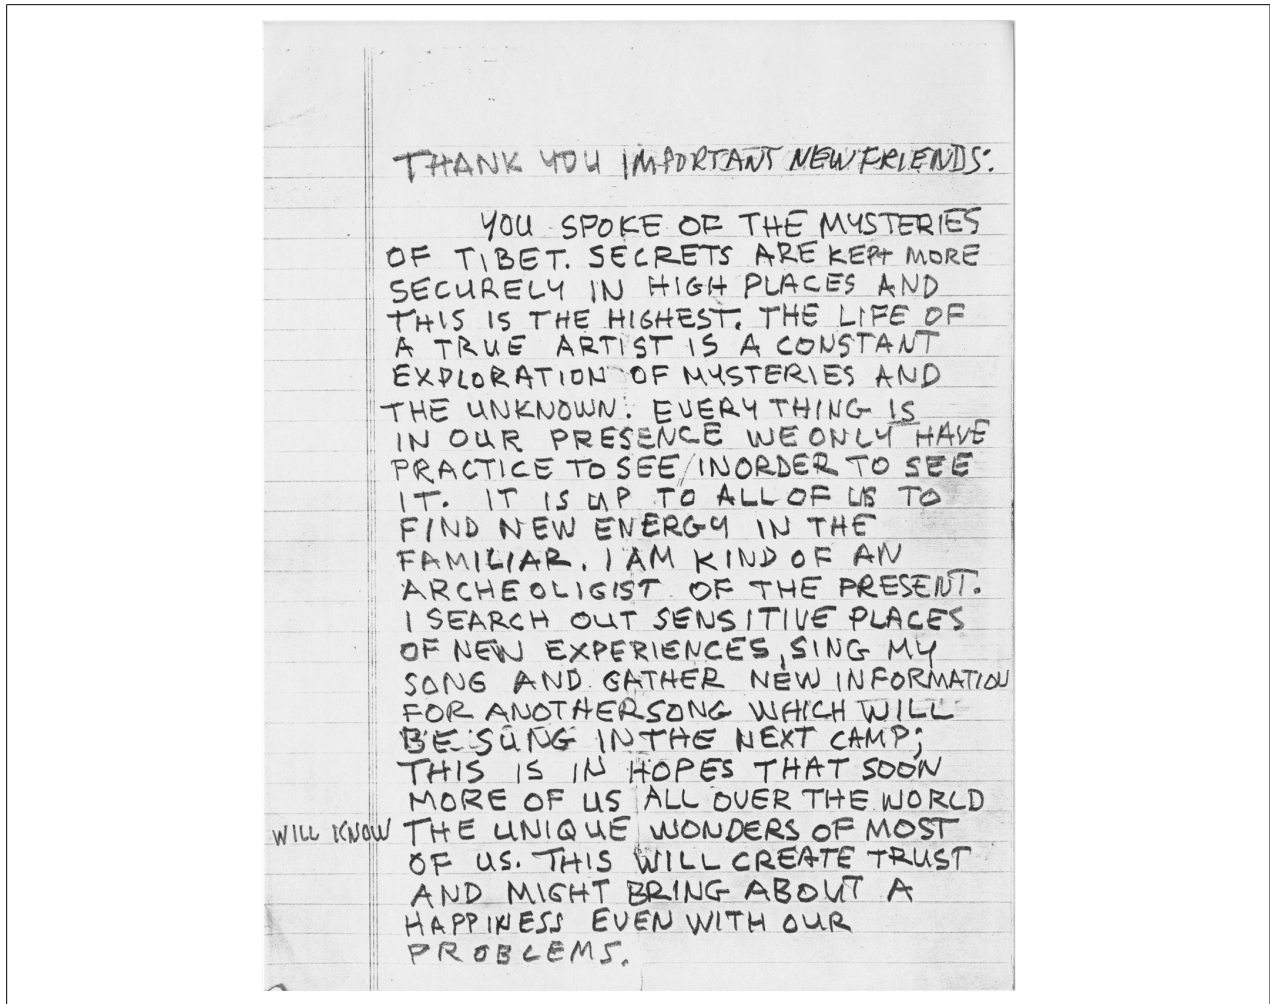 THANK YOU IMPORTANT NEW FRIENDS:
YOU SPOKE OF THE MYSTERIES
OF TIBET. SECRETS ARE KEPT MORE
SECURELY IN HIGH PLACES AND
THIS IS THE HIGHEST. THE LIFE OF
A TRUE ARTIST IS A CONSTANT
EXPLORATION OF MYSTERIES AND
THE UNKNOWN. EVERY THING IS
IN OUR PRESENCE WE ONLY HAVE
PRACTICE TO SEE/INORDER TO SEE
IT. IT IS UP TO ALL OF US TO
FIND NEW ENERGY IN THE
FAMILIAR. I AM KIND OF AN
ARCHEOLIGIST OF THE PRESENT.
I SEARCH OUT SENSITIVE PLACES
OF NEW EXPERIENCES, SING MY
SONG AND GATHER NEW INFORMATION
FOR ANOTHER SONG WHICH WILL
BE SUNG IN THE NEXT CAMP;
THIS IS IN HOPES THAT SOON
MORE OF US ALL OVER THE WORLD
WILL KNOW THE UNIQUE WONDERS OF MOST
OF US. THIS WILL CREATE TRUST
AND MIGHT BRING ABOUT A
HAPPINESS EVEN WITH OUR
PROBLEMS.